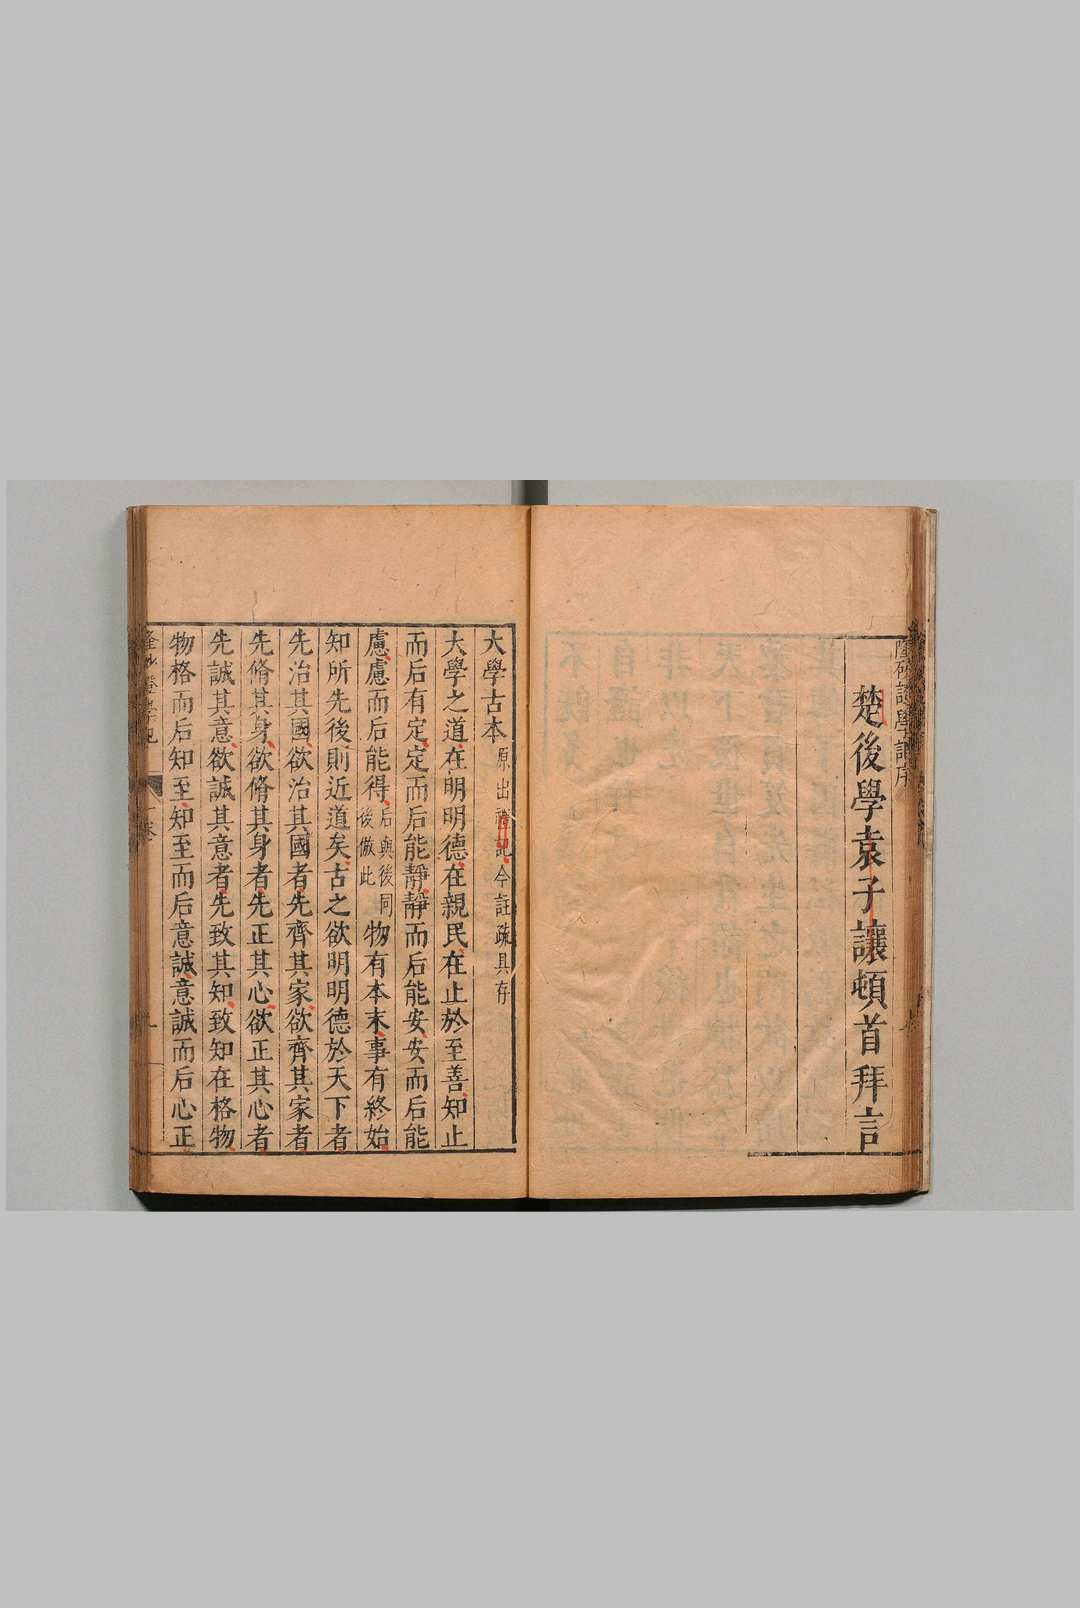 楚後學袁子讓頓首拜言
大學古本原出禮記今註疏具存
大學之道在明明德在親民在止於至善知止
而后有定定而后能靜靜而后能安安而后能
慮慮而后能得后與後同後倣此物有本末事有終始
知所先後則近道矣古之欲明明德於天下者
先治其國欲治其國者先齊其家欲齊其家者
先脩其身欲脩其身者先正其心欲正其心者
先誠其意欲誠其意者先致其知致知在格物
物格而后知至知至而后意誠意誠而后心正